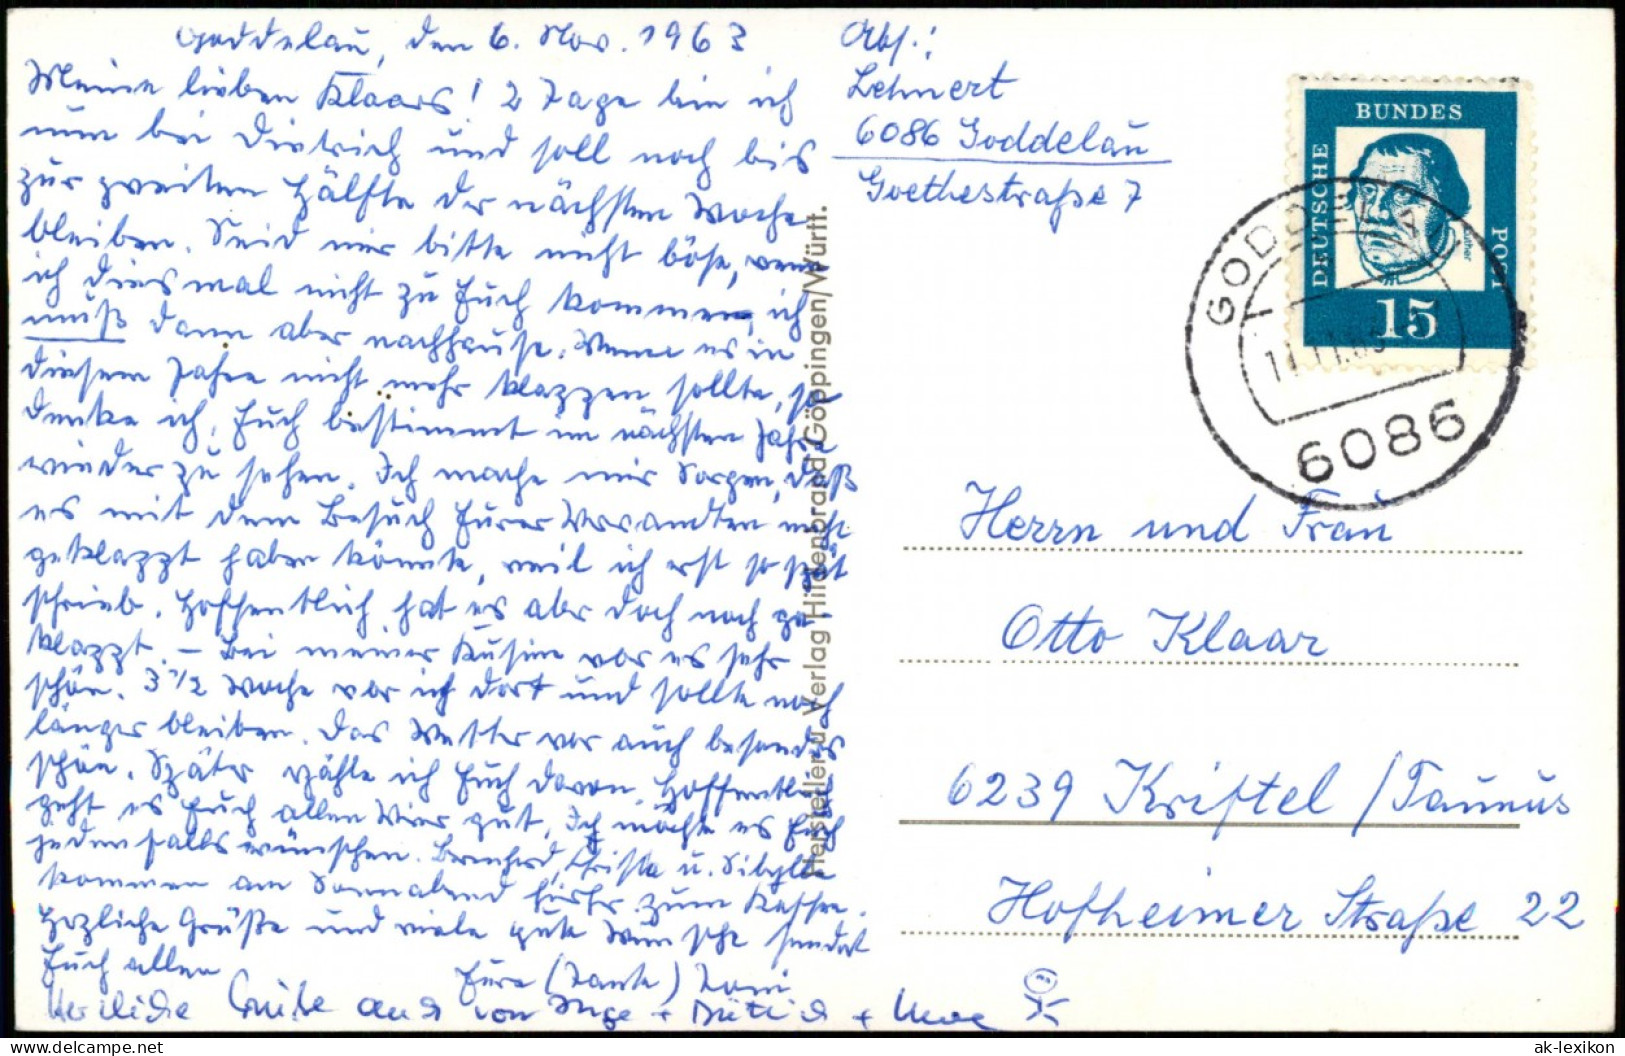 Goddelau, den 6. Nov. 1963
Meine lieben Klaars! 2 Tage bin ich
nun bei Dietrich und soll noch bis
zur zweiten Hälfte der nächsten Woche
bleiben. Seid mir bitte nicht böse, wenn
ich diesmal nicht zu Euch komme, ich
muß dann aber nachhause. Wenn es in
diesem Jahre nicht mehr klappen sollte, so
denke ich, Euch bestimmt im nächsten Jahre
wieder zu sehen. Ich mache mir Sorgen, daß
es mit dem Besuch Eurer Verwandten nicht
geklappt haben könnte, weil ich erst so spät
schrieb. Hoffentlich hat es aber doch noch ge-
klappt. – Bei meiner Kusine war es sehr
schön. 3 1/2 Woche war ich dort und sollte noch
länger bleiben. Das Wetter war auch besonders
schön. Später erzähle ich Euch davon. Hoffentlich
geht es Euch allen Vier gut. Ich möchte es Euch
jedenfalls wünschen. Bernhard, Christa u. Sibylle
kommen am Sonnabend hierher zum Kaffee.
Herzliche Grüße und viele gute Wünsche sendet
Euch allen Eure (Tante) Toni
Herzliche Grüße auch von Inge + Dietrich + Uwe
Abs.:
Lehnert
6086 Goddelau
Goethestraße 7
DEUTSCHE BUNDES POST
Luther
15
GODDELAU
11.11.63
6086
Herrn und Frau
Otto Klaar
6239 Kriftel /Taunus
Hofheimer Straße 22
Hersteller u. Verlag Hildenbrand Göppingen/Württ.
www.delcampe.net
ak-lexikon